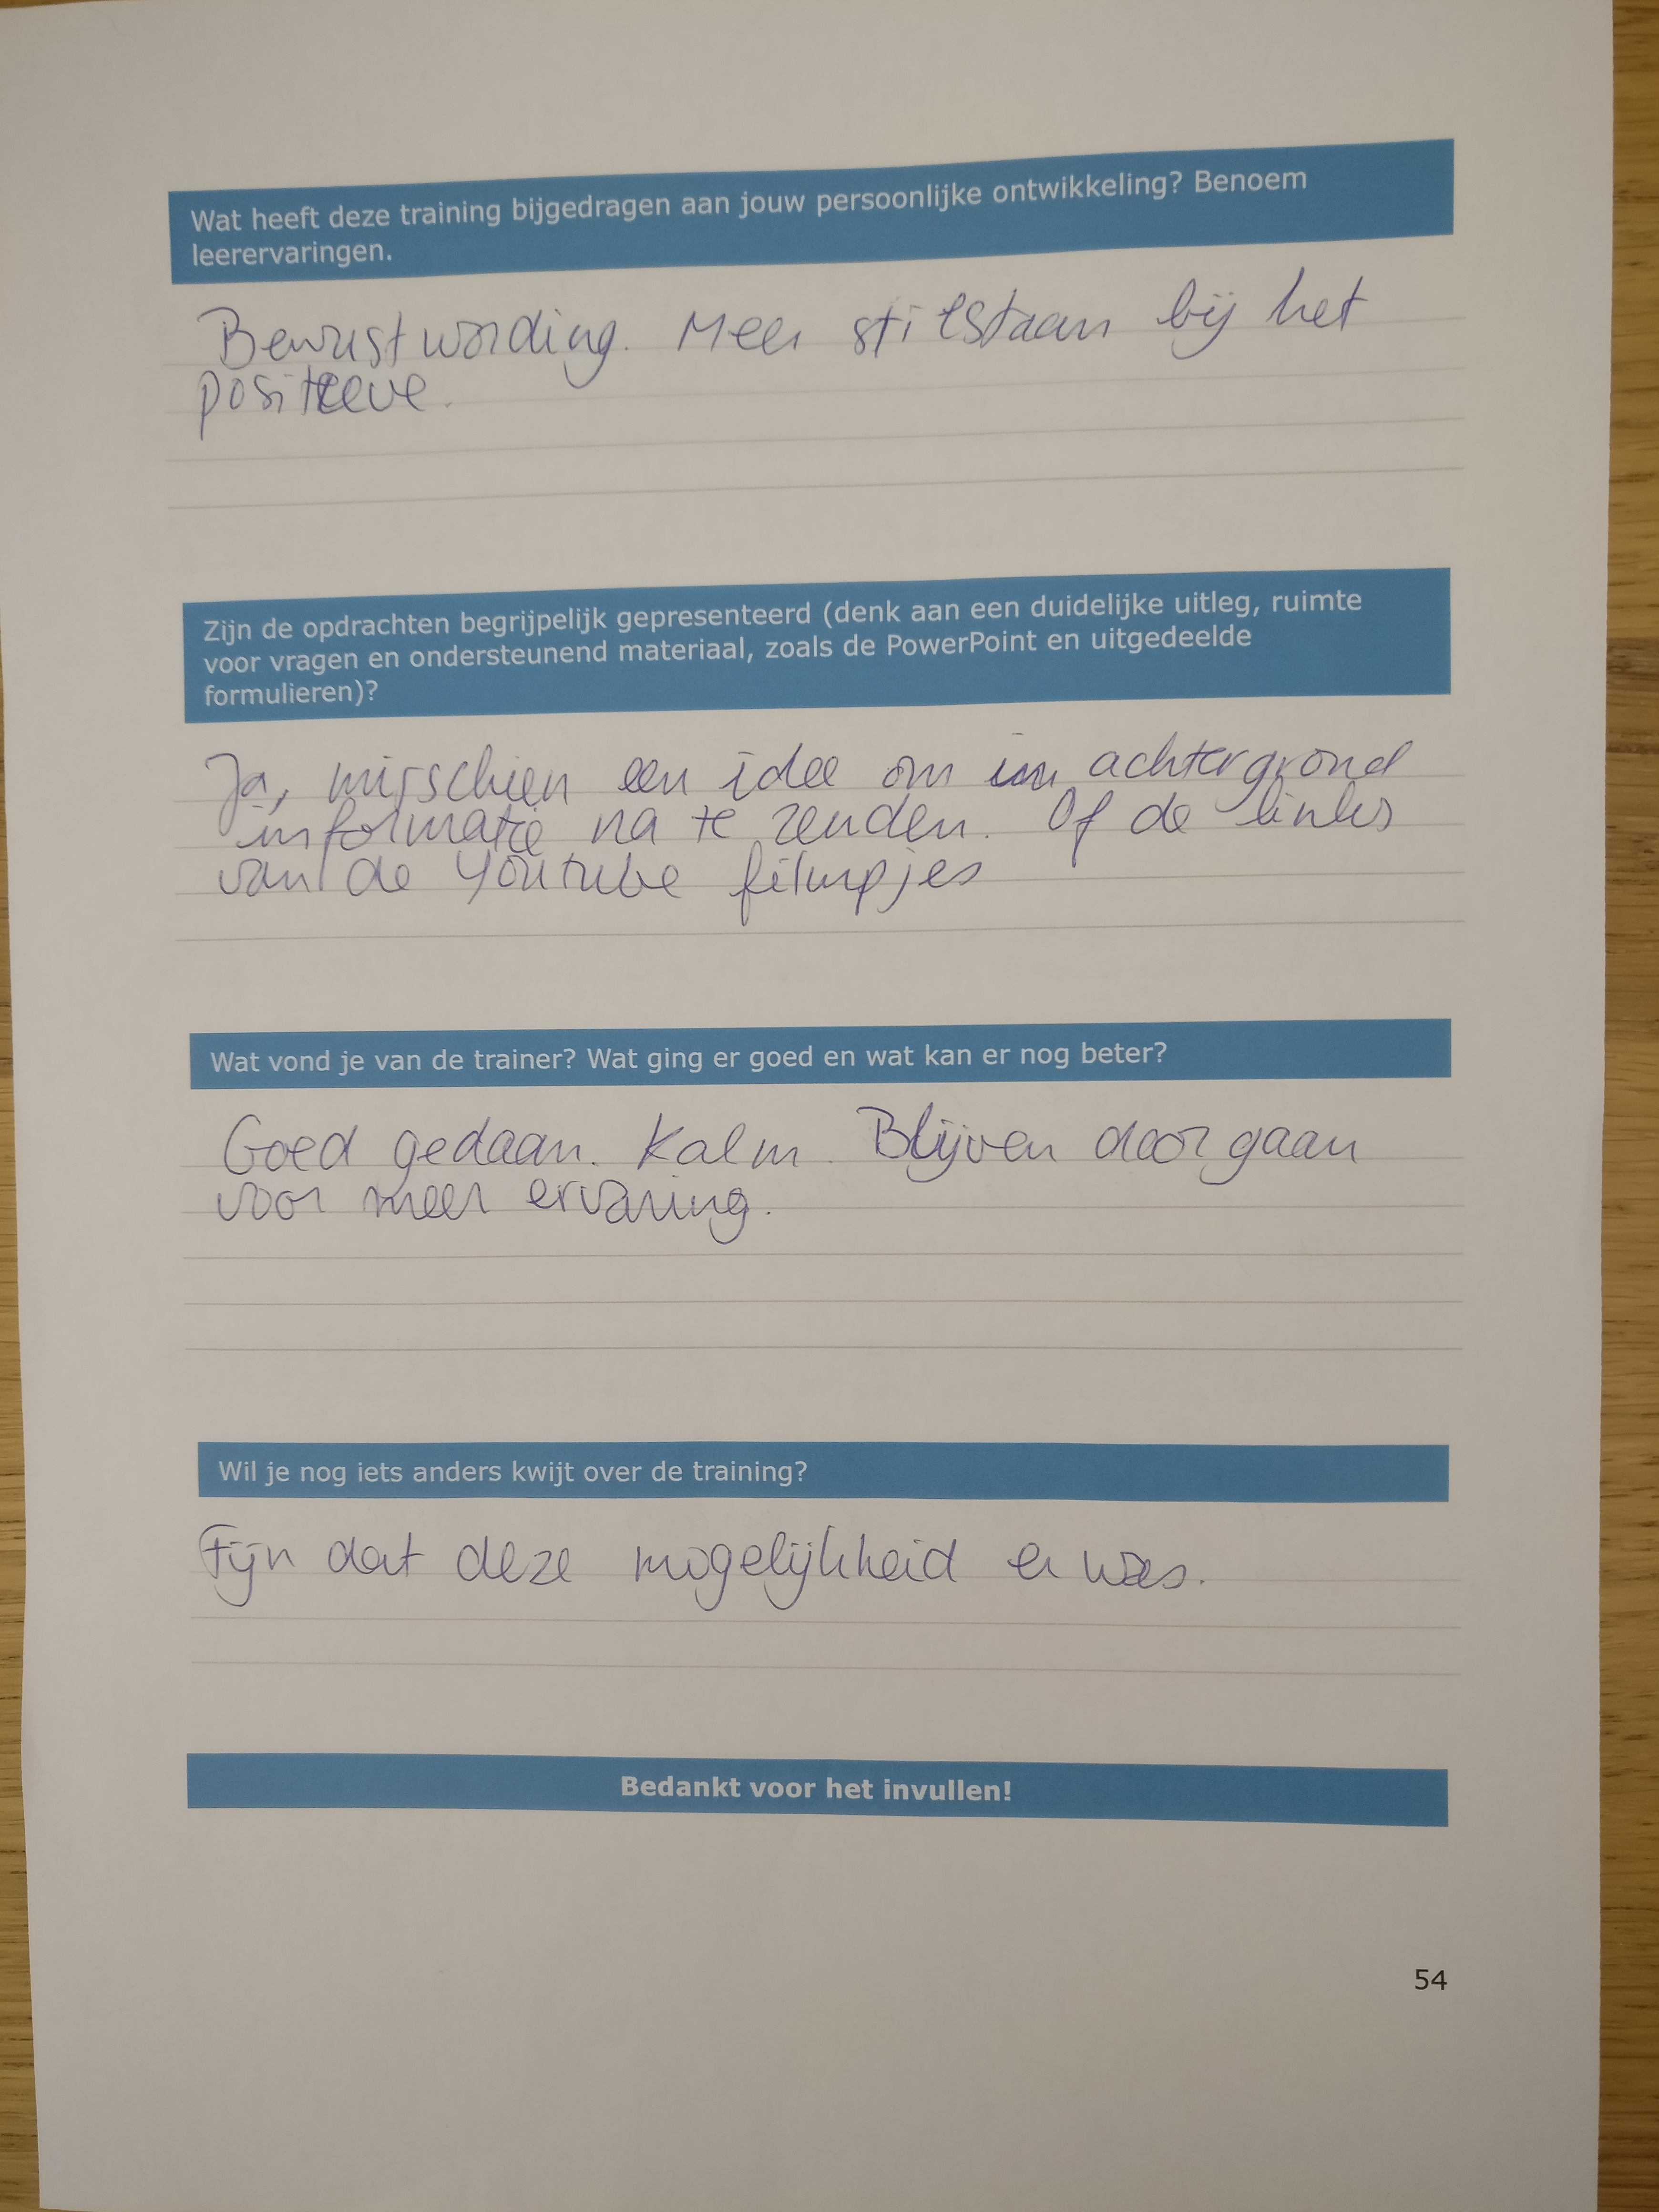 Wat heeft deze training bijgedragen aan jouw persoonlijke ontwikkeling? Benoem
leerervaringen.
Bewustwording. Meer stilstaan bij het
positieve.
Zijn de opdrachten begrijpelijk gepresenteerd (denk aan een duidelijke uitleg, ruimte
voor vragen en ondersteunend materiaal, zoals de PowerPoint en uitgedeelde
formulieren)?
Ja, misschien een idee om achtergrond
informatie na te zenden. Of de links
van de Youtube filmpjes
Wat vond je van de trainer? Wat ging er goed en wat kan er nog beter?
Goed gedaan. Kalm. Blijven doorgaan
voor meer ervaring.
Wil je nog iets anders kwijt over de training?
Fijn dat deze mogelijkheid er was.
Bedankt voor het invullen!
54